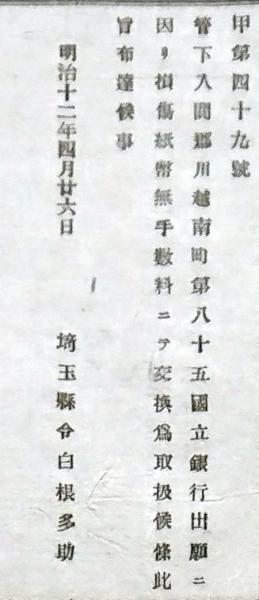 甲第四十九號
管下入間郡川越南町第八十五國立銀行出願ニ
因リ損傷紙幣無手數料ニテ交換爲取扱候條此
旨布達候事
明治十二年四月廿六日　埼玉縣令白根多助